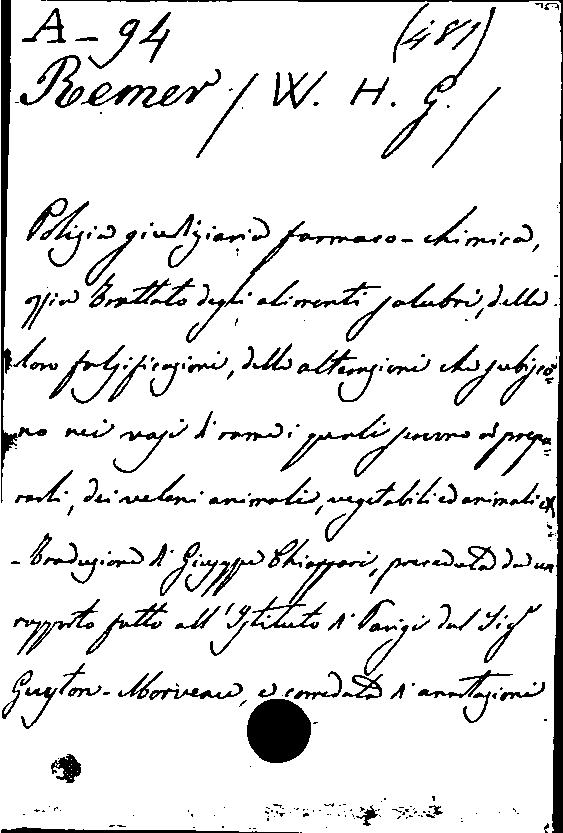 A - 94 (481)
Remer / W. H. G. /
Polizia giudiziaria farmaco-chimica,
ossia Trattato degli alimenti salubri, delle
loro falsificazioni, delle alterazioni che subisco-
no nei vasi di rame i quali servono a prepa-
rarli, dei veleni animali, vegetabili ed animali &
- Traduzione di Giuseppe Chiappari, preceduta da un
rapporto fatto all'Istituto di Parigi dal Sigr
Guyton-Morveau, e corredata di annotazioni